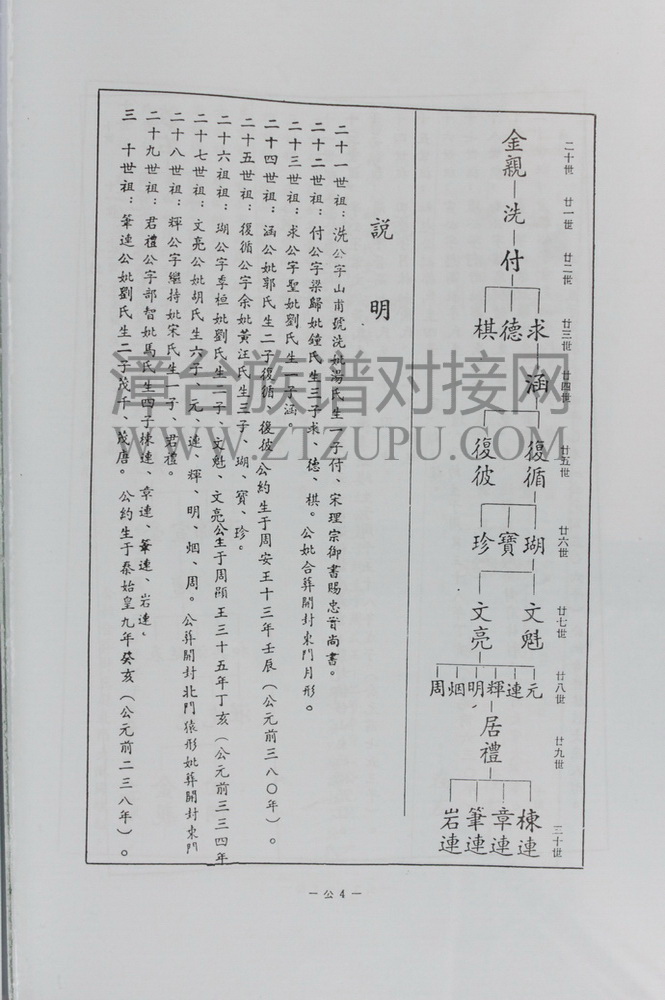 二十世
廿一世
廿二世
廿三世
廿四世
廿五世
廿六世
廿七世
廿八世
廿九世
三十世
金親
洗
付
求
德
棋
涵
復循
復彼
瑚
寶
珍
文魁
文亮
元
連
輝
明
烟
周
居禮
棟連
章連
筆連
岩連
説明
二十一世祖：洗公字山甫號洗妣湯氏生一子付、宋理宗御書賜忠晉尚書。
二十二世祖：付公字梁歸妣鐘氏生三子求、德、棋。公妣合葬開封東門月形。
二十三世祖：求公字聖妣劉氏生一子涵。
二十四世祖：涵公妣郭氏生二子復循、後彼公約生于周安王十三年壬辰（公元前三八〇年）。
二十五世祖：復循公字余妣黃江氏生三子、瑚、寶、珍。
二十六祖祖：瑚公字季桓妣劉氏生二子、文魁、文亮公生于周顯王三十五年丁亥（公元前三三四年
二十七世祖：文亮公妣胡氏生六子、元、連、輝、明、烟、周。公葬開封北門猿形妣葬開封東門
二十八世祖：輝公字繼持妣宋氏生一子、君禮。
二十九世祖：君禮公字部智妣馬氏生四子棟連、章連、筆連、岩連、
三 十世祖：筆連公妣劉氏生二子茂千、茂唐。公約生于秦始皇九年癸亥（公元前二三八年）。
—公4—
漳台族谱对接网
WWW.ZTZUPU.COM